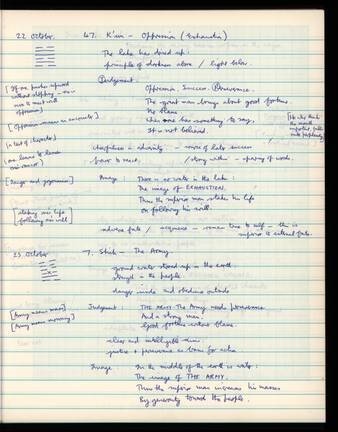 22 October.
47. K'un - Oppression (Exhaustion)
The lake has dried up:
principle of darkness above / light below.
[If one pushes upward
without stopping - one
sure to meet with
oppression]
Judgement:
Oppression. Success. Perseverance.
The great man brings about good fortune.
No blame.
When one has something to say,
It is not believed.
[Oppression means an encounter]
[a test of character]
cheerfulness in adversity - source of later success
[one learns to lessen
one's rancor]
/ strong within - sparing of words.
[danger and joyousness]
Image: There is no water in the lake:
The image of EXHAUSTION.
Thus the superior man stakes his life
On following his will.
[staking one's life
following one's will]
adverse fate / acquiesce - remain true to self - this is
superior to external fate.
23 October
7. Shih - The Army
ground water stored up in the earth
strength in the people.
danger inside and obedience outside
[Army means mass]
[Army means mourning]
Judgment: THE ARMY. The Army needs perseverance
And a strong man.
Good fortune without blame.
clear and intelligible aims.
justice + perseverance as basis for action
Image: In the middle of the earth is water:
The image of THE ARMY.
Thus the superior man increases his masses
By generosity toward the people.